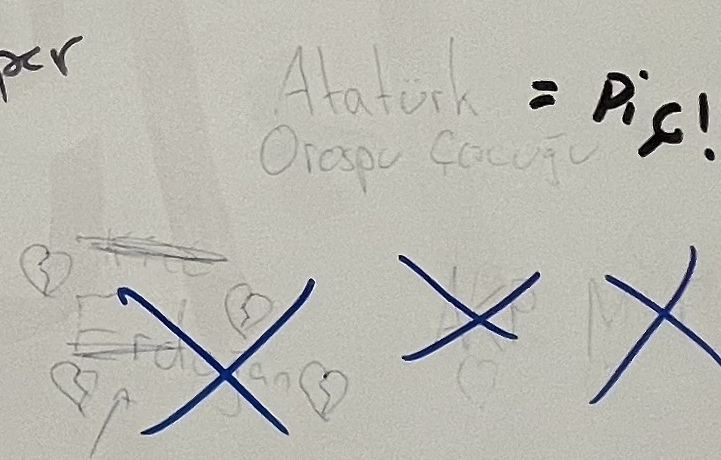 Atatürk = Piç!
Orospu Çocuğu
Erdoğan
AKP